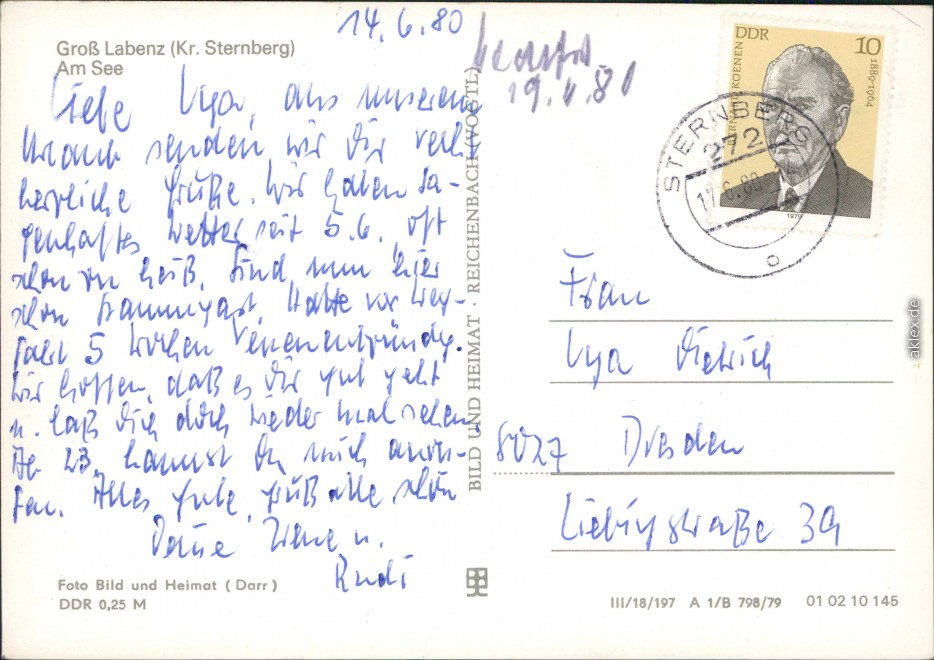 14.6.80
Groß Labenz (Kr. Sternberg)
Am See
Liebe Uya, aus unserem
Urlaub senden wir Dir recht
herzliche Grüße. Wir haben sa-
genhaftes Wetter seit 5.6., oft
schon zu heiß. Sind nun hier
schon Stammgast. Hatte vor
5 Wochen Venenentzündg.
Wir hoffen, daß es Dir gut geht
u. laß Dich doch wieder mal sehen.
Ab 23. kannst Du mich anru-
fen. Alles Gute, grüß alle schön
Deine Irene u.
Rudi
Foto Bild und Heimat (Darr)
DDR 0,25 M
BILD UND HEIMAT · REICHENBACH (VOGTL)
19. 80
DDR 10
BERNARD KOENEN
1889-1964
1979
STERNBERG
272
6.80
Frau
Uya Dietrich
8027 Dresden
Liebigstraße 39
III/18/197 A 1/B 798/79 01 02 10 145
aklex.de